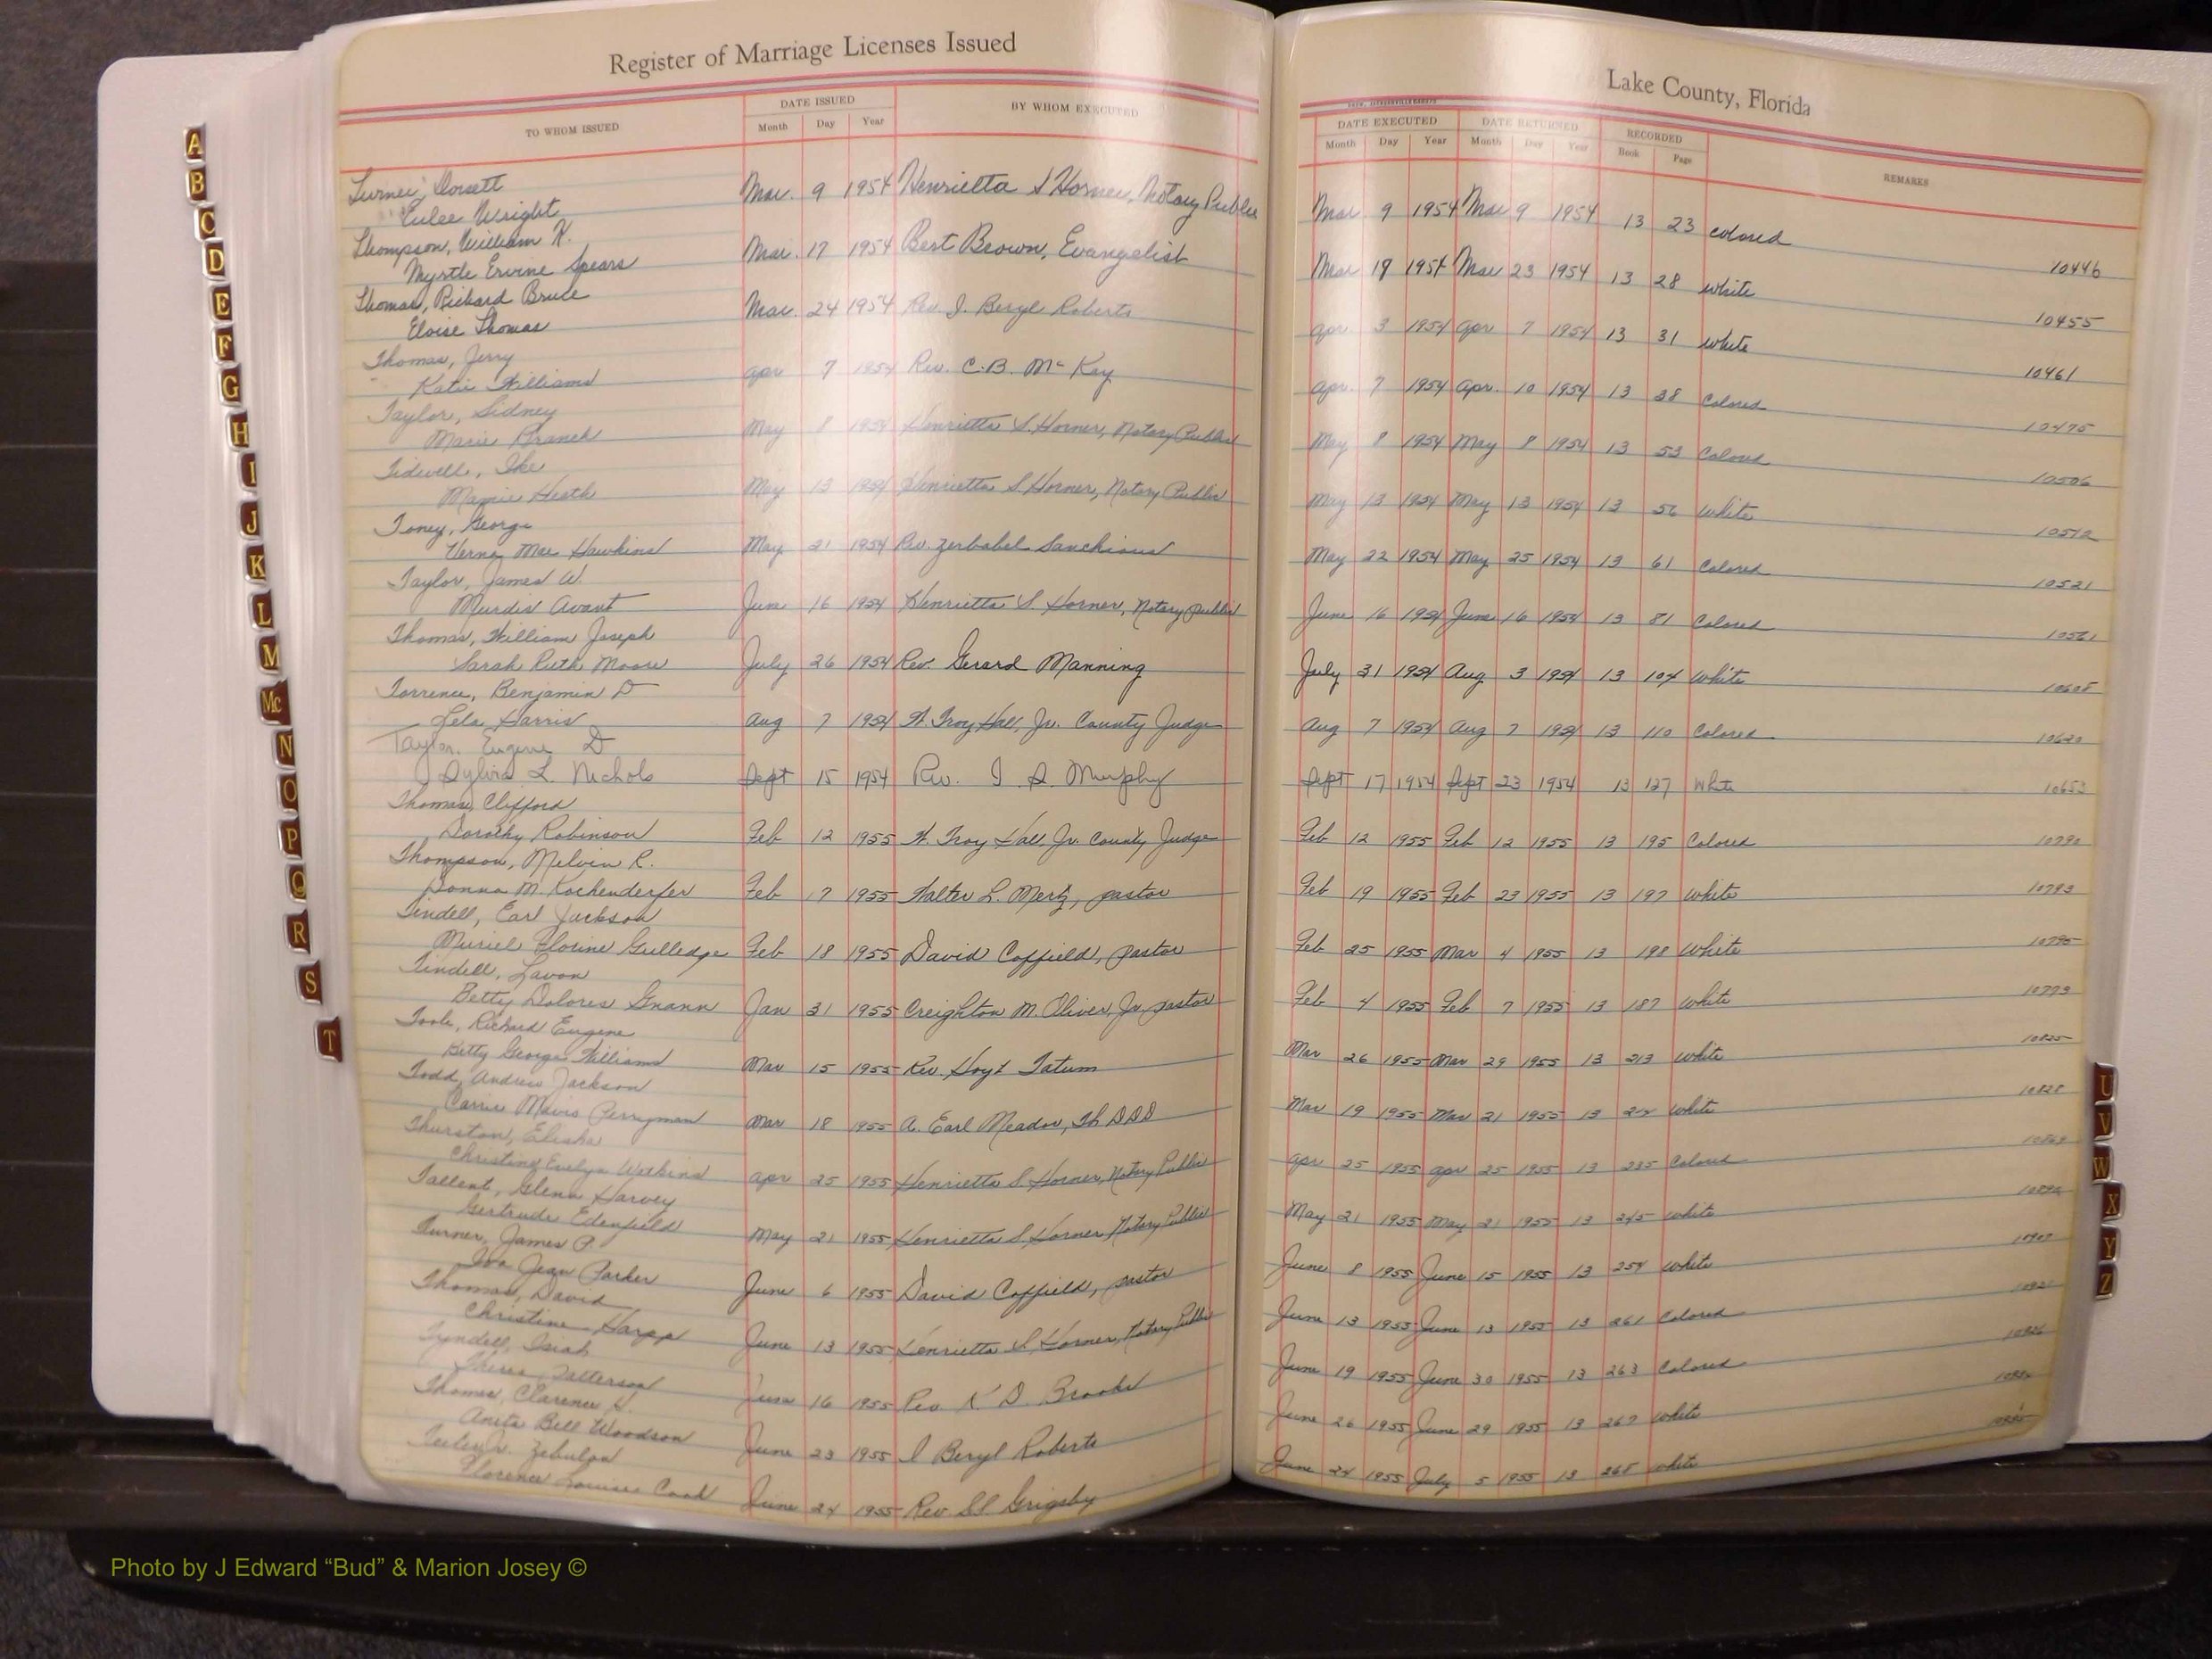 Register of Marriage Licenses Issued
Lake County, Florida
TO WHOM ISSUED
DATE ISSUED
Month Day Year
BY WHOM EXECUTED
DATE EXECUTED
Month Day Year
DATE RETURNED
Month Day Year
RECORDED
Book Page
REMARKS
Turner, Dorsett
Eulee Wright Mar. 9 1954 Henrietta S Horner, Notary Public Mar 9 1954 Mar 9 1954 13 23 colored 10446
Thompson, William
Myrtle Ervine Spears Mar. 17 1954 Bert Brown, Evangelist Mar 19 1954 Mar 23 1954 13 28 white 10455
Thomas, Richard Bruce
Eloise Thomas Mar. 24 1954 Rev. J. Beryl Roberts apr 3 1954 apr 7 1954 13 31 white 10461
Thomas, Jerry
Katie Williams apr 7 1954 Rev. C.B. McKay apr. 7 1954 apr. 10 1954 13 38 Colored 10475
Taylor, Sidney
Marie Branch May 8 1954 Henrietta S. Horner, Notary Public May 8 1954 May 8 1954 13 53 Colored 10506
Tidwell, Ike
Mamie Heath May 13 1954 Henrietta S. Horner, Notary Public May 13 1954 May 13 1954 13 56 White 10512
Toney, George
Verna Mae Hawkins May 21 1954 Rev. Zerbabel Sanchious May 22 1954 May 25 1954 13 61 Colored 10521
Taylor, James W.
Murdis Avant June 16 1954 Henrietta S. Horner, Notary public June 16 1954 June 16 1954 13 81 Colored 10561
Thomas, William Joseph
Sarah Ruth Moore July 26 1954 Rev. Gerard Manning July 31 1954 Aug 3 1954 13 104 White 10608
Torrence, Benjamin D
Lela Harris Aug 7 1954 W. Troy Hall, Jr. County Judge Aug 7 1954 Aug 7 1954 13 110 Colored 10620
Taylor, Eugene D
Sylvia L. Nichols Sept 15 1954 Rev. Murphy Sept 17 1954 Sept 23 1954 13 127 White 10653
Thomas, Clifford
Dorothy Robinson Feb 12 1955 W. Troy Hall, Jr. County Judge Feb 12 1955 Feb 12 1955 13 195 Colored 10790
Thompson, Melvin R.
Donna M. Kochenderfer Feb 17 1955 Walter L. Mertz, pastor Feb 19 1955 Feb 23 1955 13 197 White 10793
Tindell, Earl Jackson
Muriel Florine Gulledge Feb 18 1955 David Coffield, pastor Feb 25 1955 Mar 4 1955 13 198 White 10795
Tindell, Lavon
Betty Dolores Gnann Jan 31 1955 Creighton M. Oliver, Jr. pastor Feb 4 1955 Feb 7 1955 13 187 White 10773
Toole, Richard Eugene
Betty George Williams Mar 15 1955 Rev. Hoyt Tatum Mar 26 1955 Mar 29 1955 13 213 White 10825
Todd, Andrew Jackson
Carrie Mavis Perryman Mar 18 1955 A. Earl Meador, Th DDD Mar 19 1955 Mar 21 1955 13 White 10828
Thurston, Elisha
Christine Evelyn Watkins apr 25 1955 Henrietta S. Horner, Notary Public apr 25 1955 apr 25 1955 13 235 Colored
Tallent, Glenn Harvey
Gertrude Edenfield May 21 1955 Henrietta S Horner Notary Public May 21 1955 May 21 1955 13 245 White
Turner, James P.
Iva Jean Parker June 6 1955 David Coffield, pastor June 8 1955 June 15 1955 13 254 White
Thomas, David
Christine Harpp June 13 1955 Henrietta S. Horner, Notary Public June 13 1955 June 13 1955 13 261 Colored
Tyndell, Isiah
Patterson June 16 1955 Rev K D. Brooks June 19 1955 June 30 1955 13 263 Colored
Thomas, Clarence
Anita Bell Woodson June 23 1955 Beryl Roberts June 26 1955 June 29 1955 13 267 White
Zebulon
Florence Louise Cook June 24 1955 Rev Grigsby June 24 1955 July 5 1955 13 268 White
A
B
C
D
E
F
G
H
I
J
K
L
M
Mc
N
O
P
Q
R
S
T
U
V
W
X
Y
Z
Photo by J Edward “Bud” & Marion Josey ©